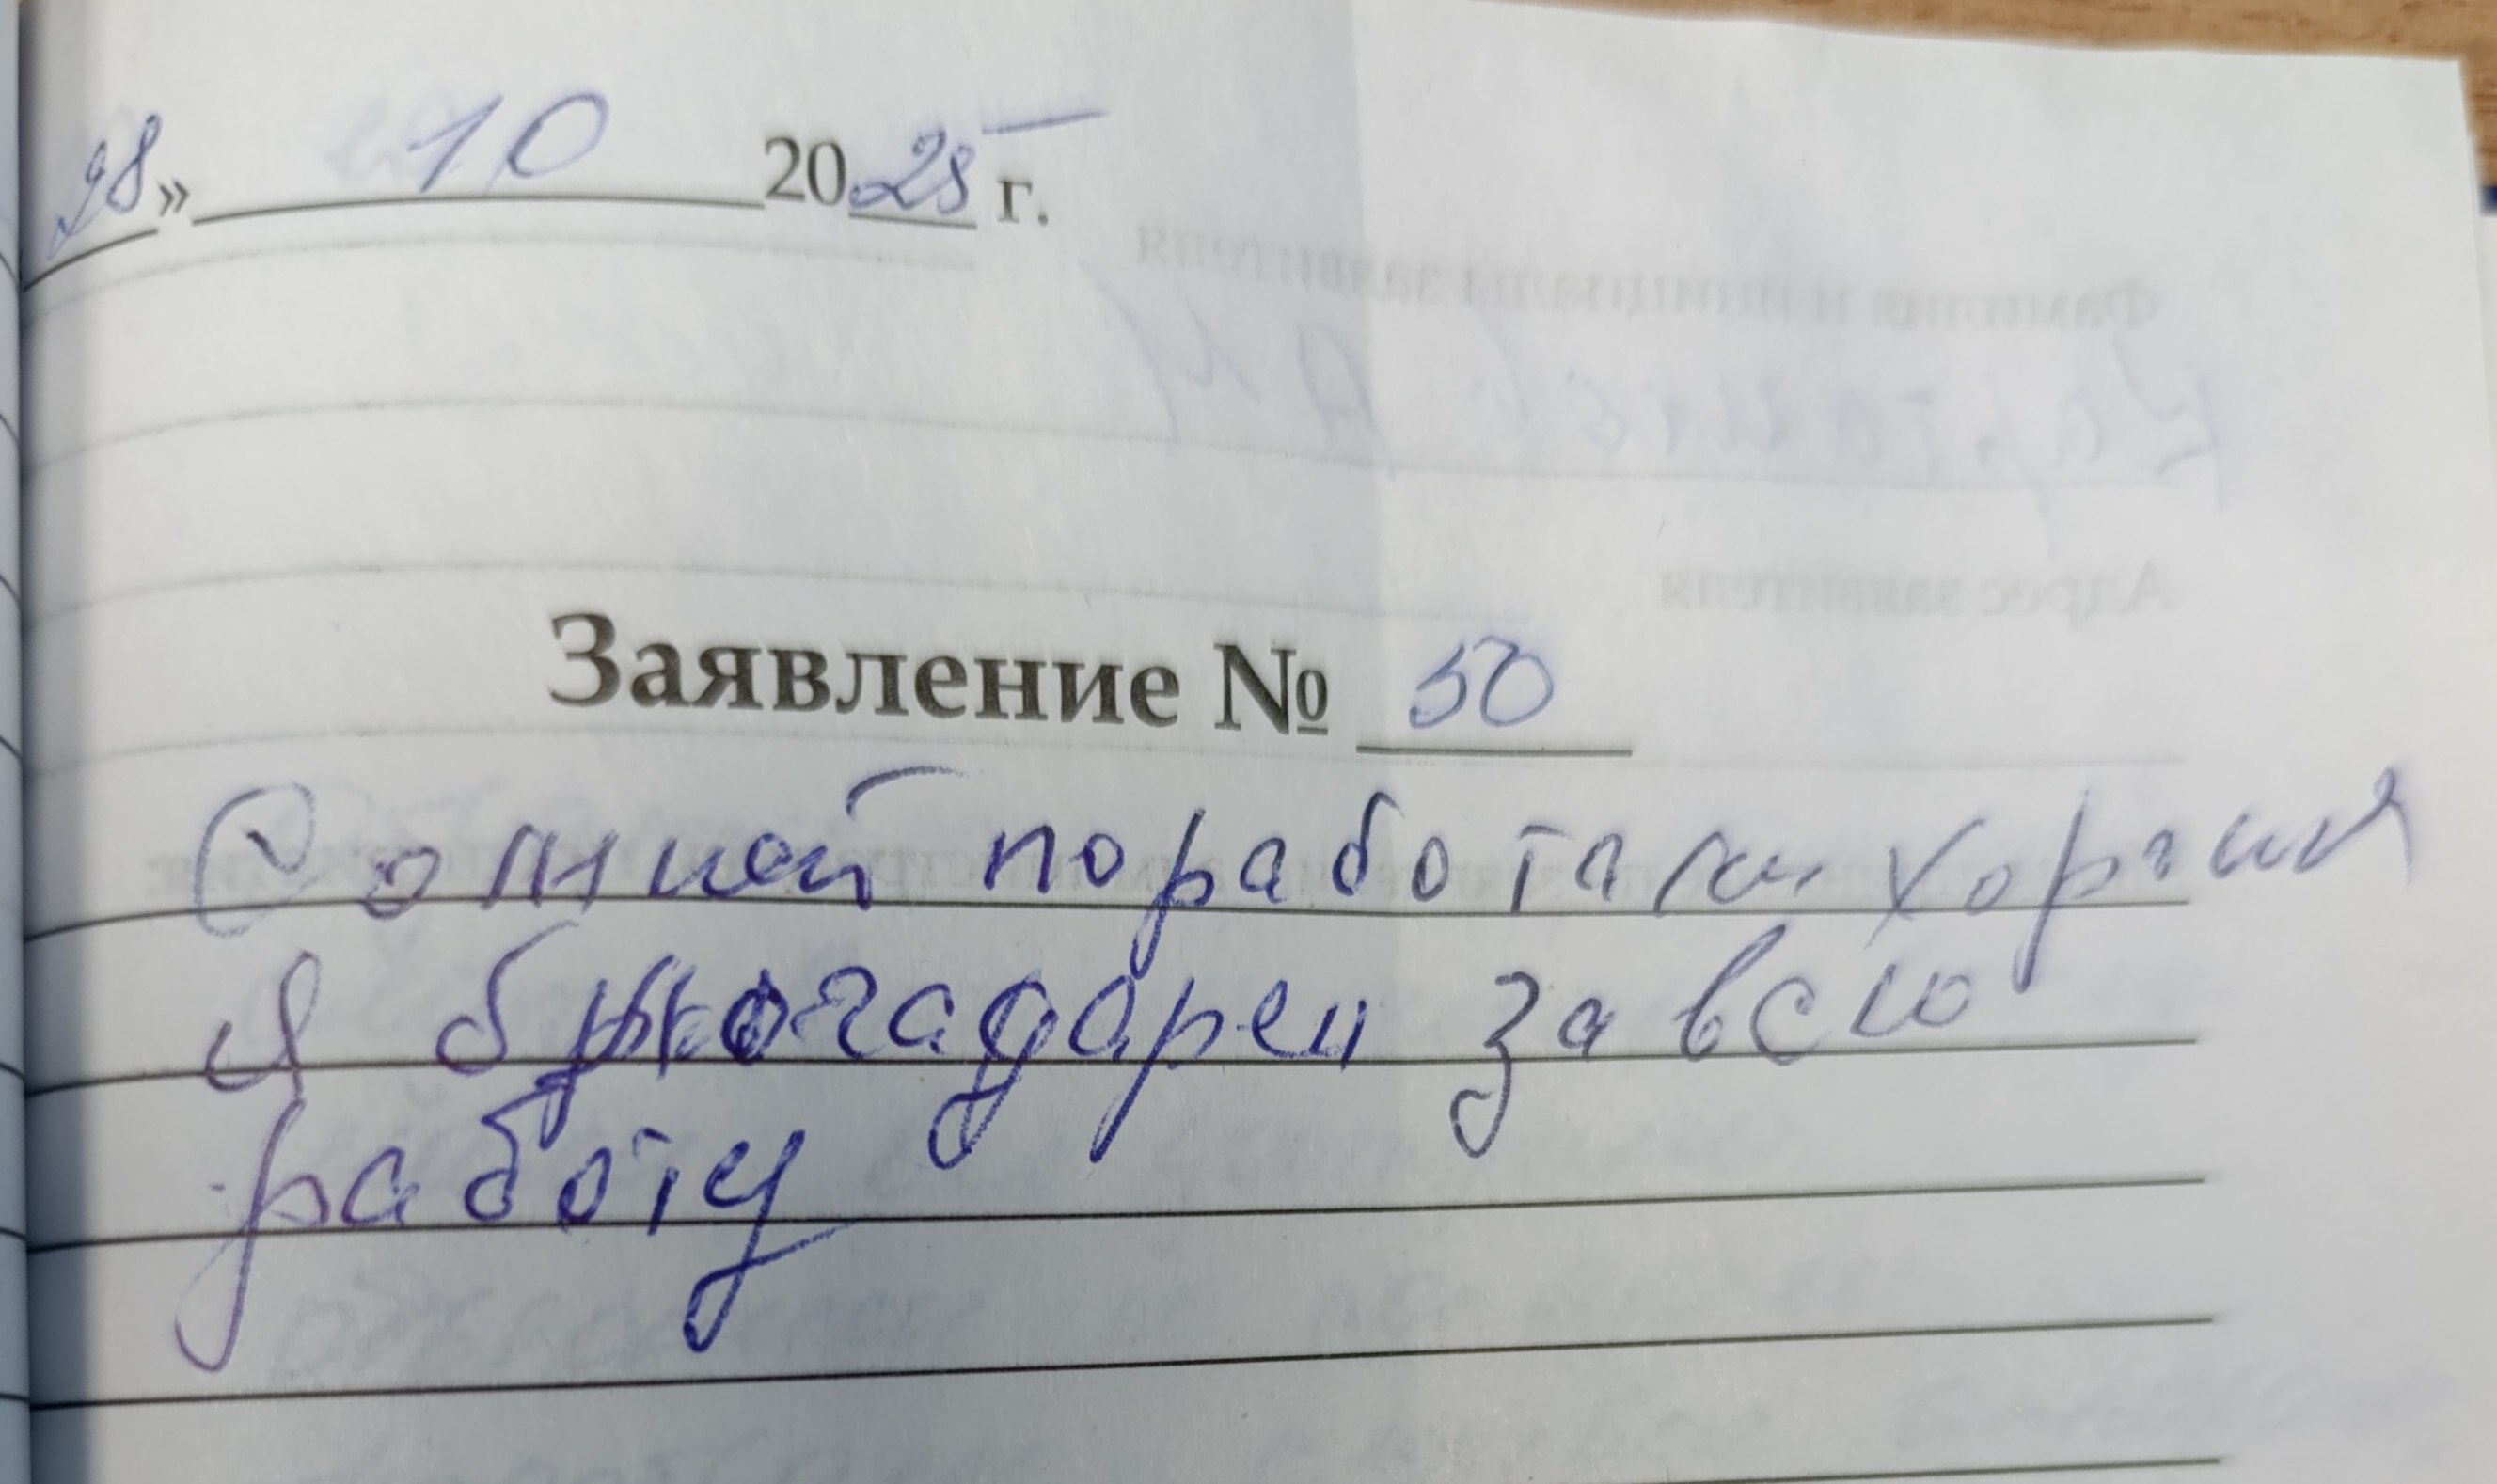 28» 10 2025 г.
Заявление № 50
Со мной поработали хорошо
Я благодарен за всю
работу